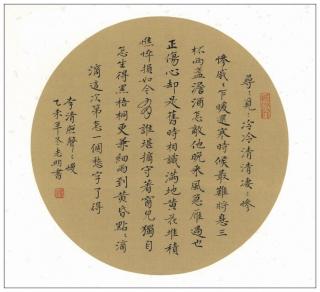 尋〻覓〻冷冷清清凄〻慘
慘戚〻乍暖還寒時候最難將息三
杯兩盞澹酒怎敵他晚來風急雁過也
正傷心却是舊時相識滿地黃花堆積
憔悴損如今有誰堪摘守著窗兒獨自
怎生得黑梧桐更兼細雨到黃昏點〻滴
滴這次第怎一個愁字了得
李清照聲〻慢
乙未年冬志明書